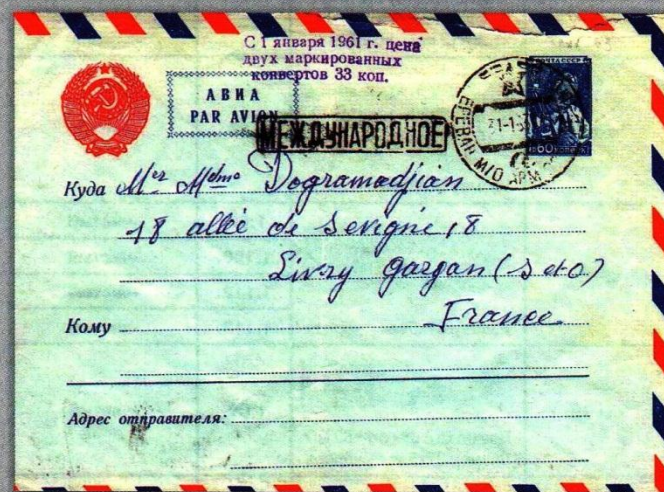 С 1 января 1961 г. цена
двух маркированных
конвертов 33 коп.
АВИА
PAR AVION
МЕЖДУНАРОДНОЕ
ПОЧТА СССР
ЕРЕВАН
60
Куда Mer Mdme Dogramadjian
18 allée de Sevigné, 18
Livry Gargan (S et O)
Кому France
Адрес отправителя: